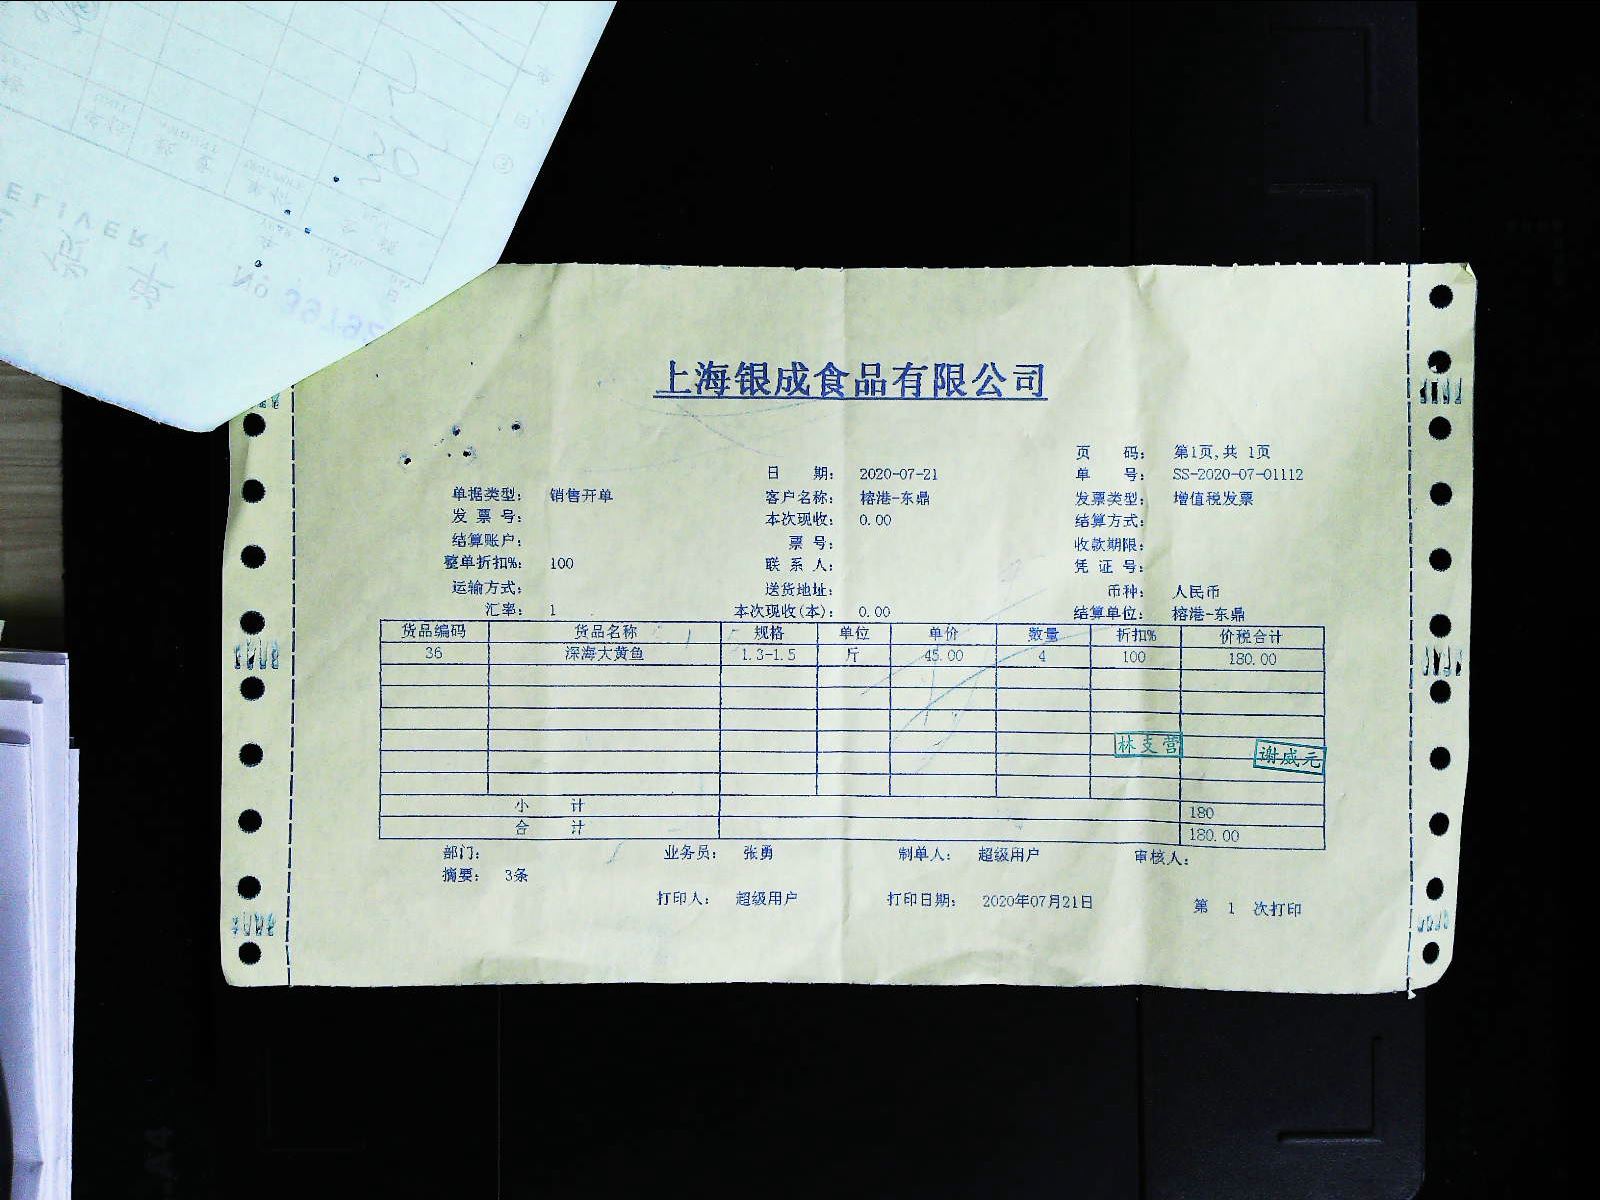 DELIVERY
No
上海银成食品有限公司
页 码： 第1页,共 1页
日 期： 2020-07-21 单 号： SS-2020-07-01112
单据类型： 销售开单 客户名称： 榕港-东鼎 发票类型： 增值税发票
发 票 号： 本次现收： 0.00 结算方式：
结算账户： 票 号： 收款期限：
整单折扣%： 100 联 系 人： 凭 证 号：
运输方式： 送货地址： 币种： 人民币
汇率： 1 本次现收(本)： 0.00 结算单位： 榕港-东鼎
货品编码 货品名称 规格 单位 单价 数量 折扣% 价税合计
36 深海大黄鱼 1.3-1.5 斤 45.00 4 100 180.00
林支营 谢威元
小 计 180
合 计 180.00
部门： 业务员： 张勇 制单人： 超级用户 审核人：
摘要： 3条
打印人： 超级用户 打印日期： 2020年07月21日 第 1 次打印
A4